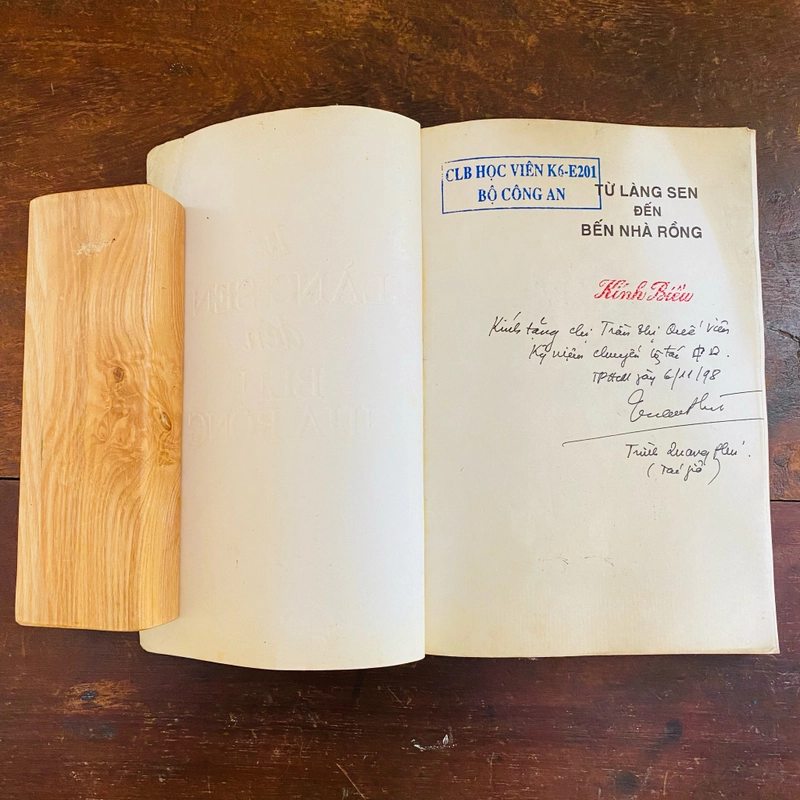 CLB HỌC VIÊN K6-E201
BỘ CÔNG AN
TỪ LÀNG SEN
ĐẾN
BẾN NHÀ RỒNG
Kính Biếu
Kính tặng chị Trần Thị Quế Viên
Kỷ niệm chuyến
TPHCM ngày 6/11/98
Trình Quang Phú
(Tác giả)